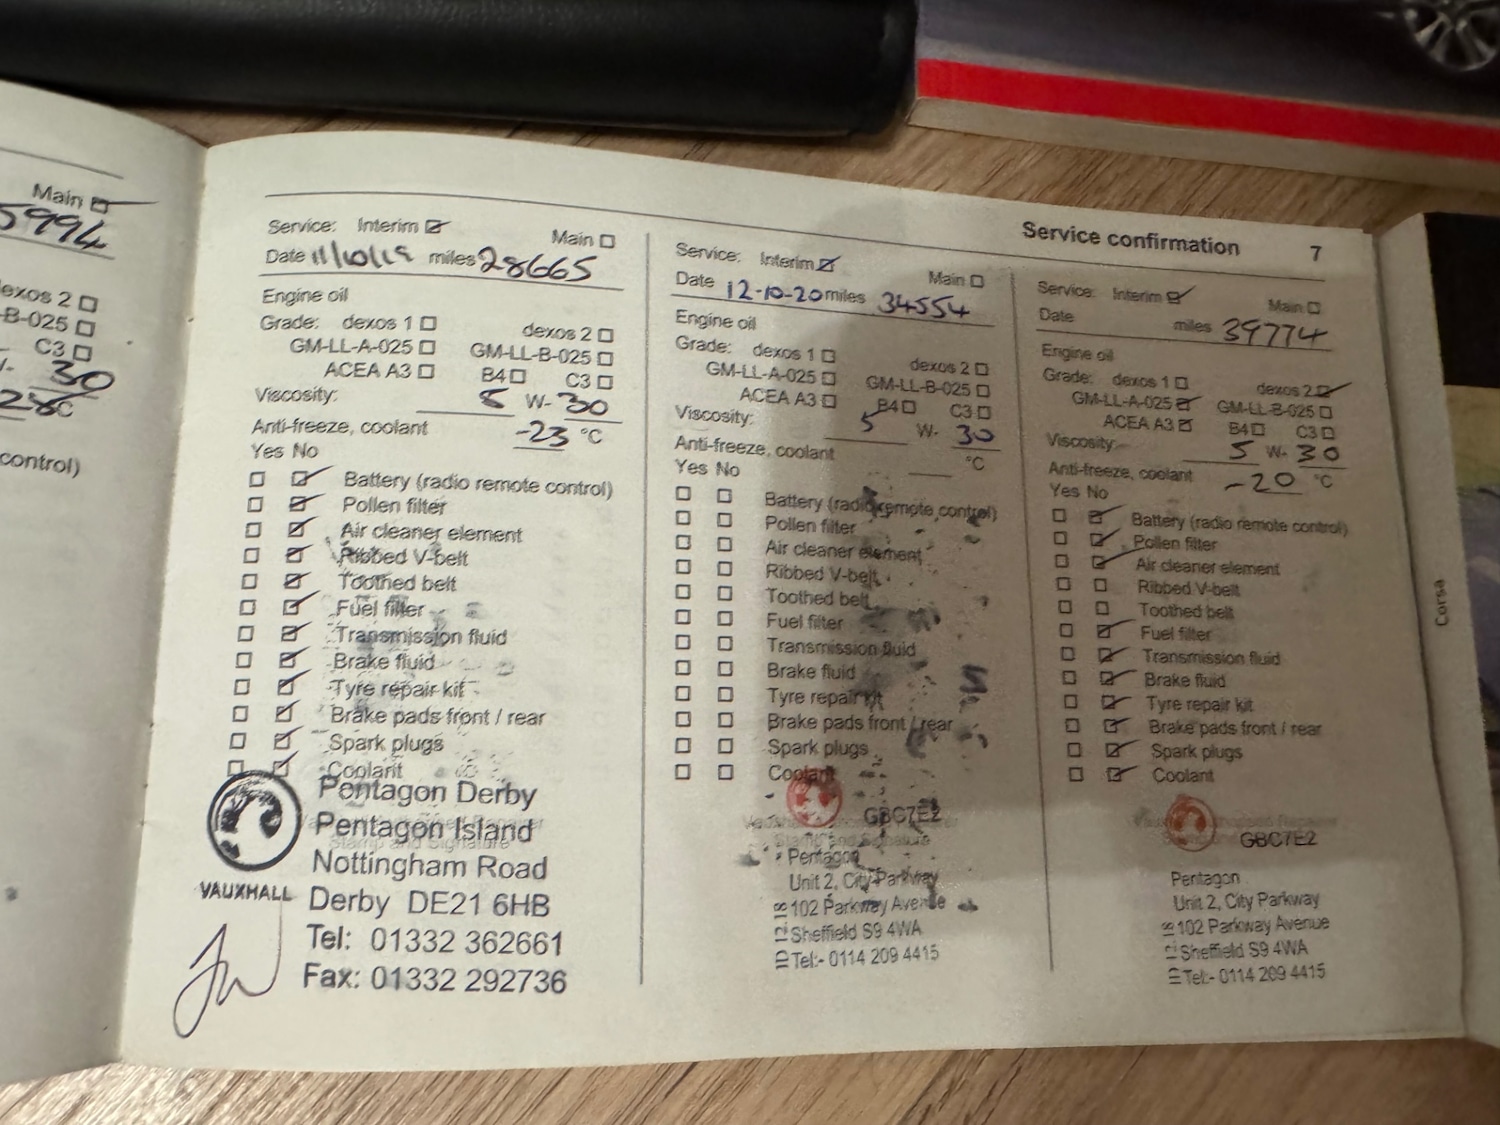 Main
5994
dexos 2
-B-025
C3
30
28°C
control)
Service confirmation 7
Service: Interim Main
Date 11/10/19 miles 28665
Engine oil
Grade: dexos 1 dexos 2
GM-LL-A-025 GM-LL-B-025
ACEA A3 B4 C3
Viscosity: 5 W- 30
Anti-freeze, coolant -23 °C
Yes No
Battery (radio remote control)
Pollen filter
Air cleaner element
Ribbed V-belt
Toothed belt
Fuel filter
Transmission fluid
Brake fluid
Tyre repair kit
Brake pads front / rear
Spark plugs
Coolant
Stamp and Signature
VAUXHALL
Pentagon Derby
Pentagon Island
Nottingham Road
Derby DE21 6HB
Tel: 01332 362661
Fax: 01332 292736
Service: Interim Main
Date 12-10-20 miles 34554
Engine oil
Grade: dexos 1 dexos 2
GM-LL-A-025 GM-LL-B-025
ACEA A3 B4 C3
Viscosity: 5 W- 30
Anti-freeze, coolant °C
Yes No
Battery (radio remote control)
Pollen filter
Air cleaner element
Ribbed V-belt
Toothed belt
Fuel filter
Transmission fluid
Brake fluid
Tyre repair kit
Brake pads front / rear
Spark plugs
Coolant
GBC7E2
Stamp and Signature
Pentagon
Unit 2, City Parkway
102 Parkway Avenue
Sheffield S9 4WA
Tel:- 0114 209 4415
Service: Interim Main
Date miles 39774
Engine oil
Grade: dexos 1 dexos 2
GM-LL-A-025 GM-LL-B-025
ACEA A3 B4 C3
Viscosity: 5 W- 30
Anti-freeze, coolant -20 °C
Yes No
Battery (radio remote control)
Pollen filter
Air cleaner element
Ribbed V-belt
Toothed belt
Fuel filter
Transmission fluid
Brake fluid
Tyre repair kit
Brake pads front / rear
Spark plugs
Coolant
GBC7E2
Pentagon
Unit 2, City Parkway
102 Parkway Avenue
Sheffield S9 4WA
Tel:- 0114 209 4415
Corsa